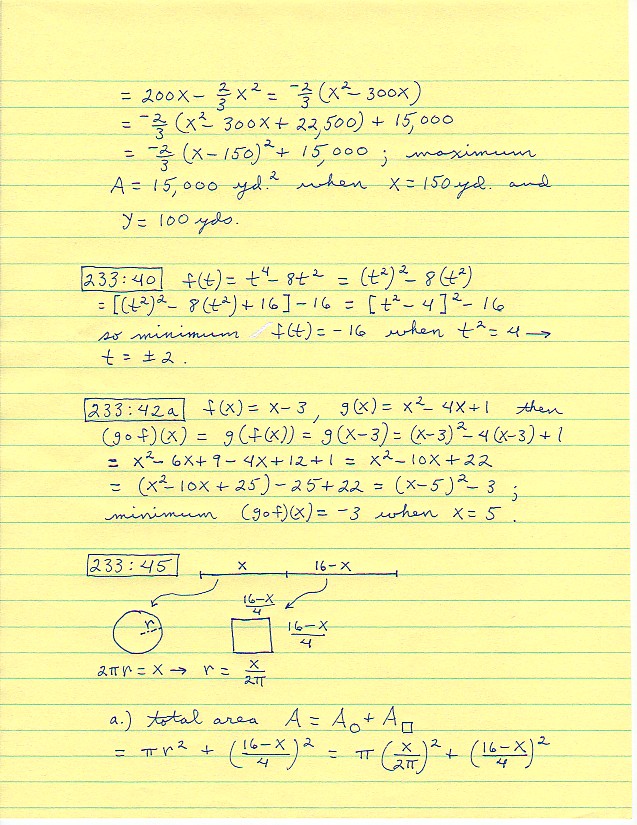 = 200x - 2/3 x² = -2/3 (x² - 300x)
= -2/3 (x² - 300x + 22,500) + 15,000
= -2/3 (x - 150)² + 15,000 ; maximum
A = 15,000 yd.² when x = 150 yd. and
y = 100 yds.
233:40 f(t) = t⁴ - 8t² = (t²)² - 8(t²)
= [(t²)² - 8(t²) + 16] - 16 = [t² - 4]² - 16
so minimum f(t) = -16 when t² = 4 →
t = ± 2 .
233:42a f(x) = x - 3 , g(x) = x² - 4x + 1 then
(g∘f)(x) = g(f(x)) = g(x-3) = (x-3)² - 4(x-3) + 1
= x² - 6x + 9 - 4x + 12 + 1 = x² - 10x + 22
= (x² - 10x + 25) - 25 + 22 = (x-5)² - 3 ;
minimum (g∘f)(x) = -3 when x = 5 .
233:45 x 16-x
(16-x)/4
r (16-x)/4
2πr = x → r = x/2π
a.) total area A = A○ + A□
= πr² + ((16-x)/4)² = π(x/2π)² + ((16-x)/4)²